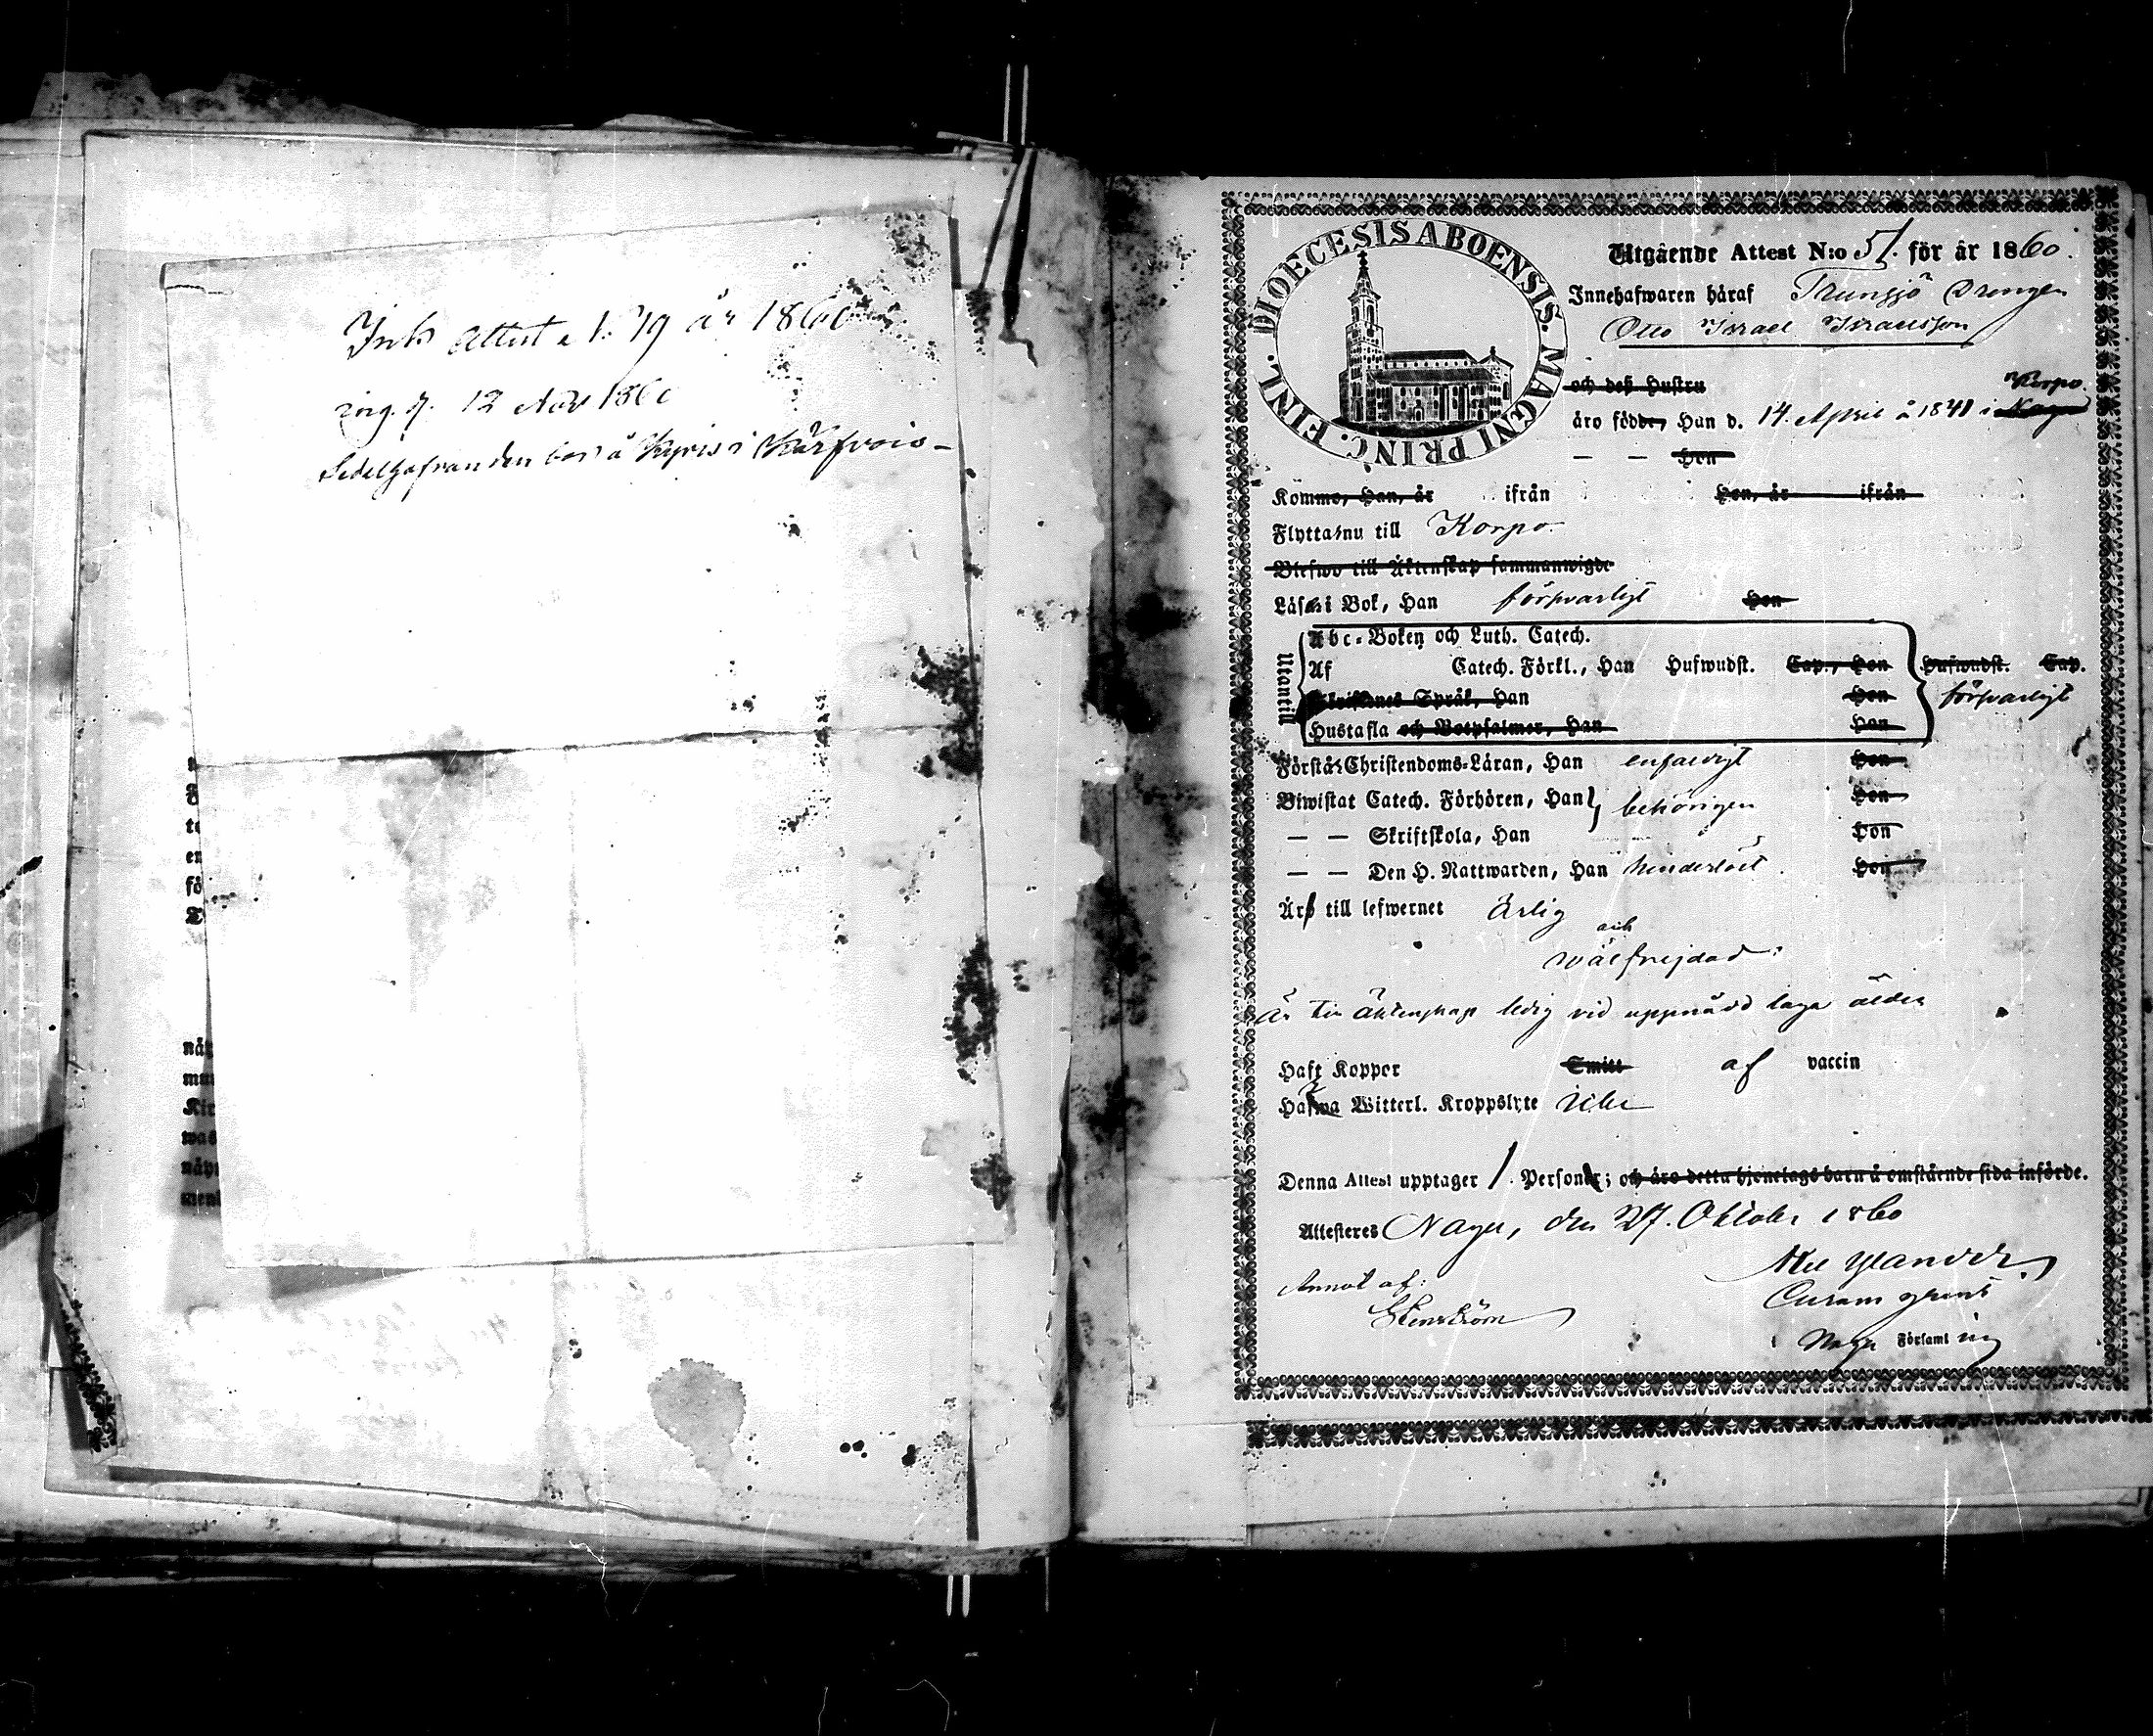 Ink attest N:o 19 år 1860
d. 12 Nov 1860
Sedelhafvanden bor å Kyris i Kärfvois
nä
Kir
was
näy
men
fö
en
DIOECESIS ABOENSIS. MAGNI PRINC. FINL.
Utgående Attest N:o 51. för år 1860.
Innehafwaren häraf Trunsjö Drengen
Otto Israel Israelsson
och deß Hustru
Korpo.
äro födde, Han d. 14. April å 1841 i Nagu
— — Hon
Komne, Han, år ifrån Hon, år ifrån
Flytta nu till Korpo
Blefwo till Äktenskap sammanwigde
Läsa i Bok, Han försvarligt Hon
Utantill
Abc-Boken och Luth. Catech.
Af Catech. Förkl., Han Hufwudst. Cap., Hon Hufwudst. Cap.
Skriftenes Språk, Han Hon försvarligt
Hustafla och Botpsalmer, Han Hon
Förstår Christendoms-Läran, Han enfaldigt Hon
Biwistat Catech. Förhören, Han behörigen Hon
— — Skriftskola, Han Hon
— — Den H. Nattwarden, Han hinderlöst. Hon
Äro till lefwernet ärlig
och
wälfrejdad.
Är till äktenskap ledig vid uppnådd laga ålder
Haft Koppor Smitt af vaccin
Hafwa Witterl. Kroppslyte icke
Denna Attest upptager 1. Personer; och äro detta hjonelags barn å omstående sida införde.
Attesteres Nagu, den 27. Oktober 1860
Annot af:
Stenström
Nagu Församling